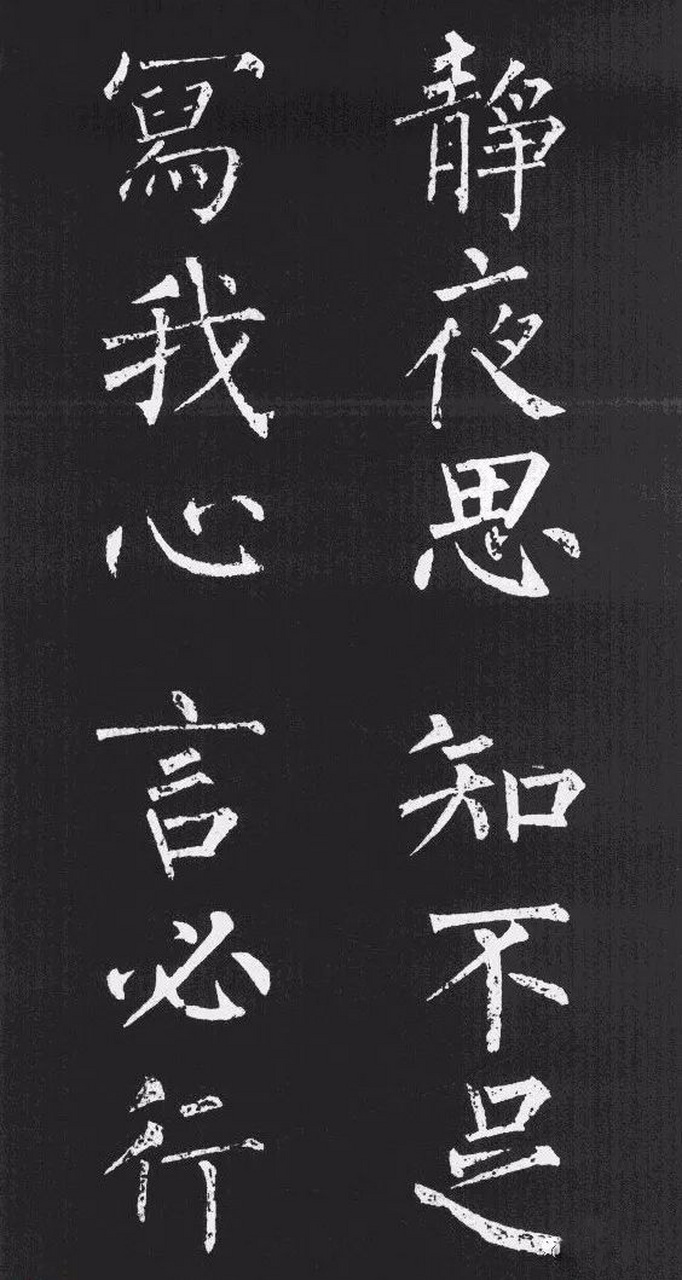 靜夜思 知不足
寫我心 言必行